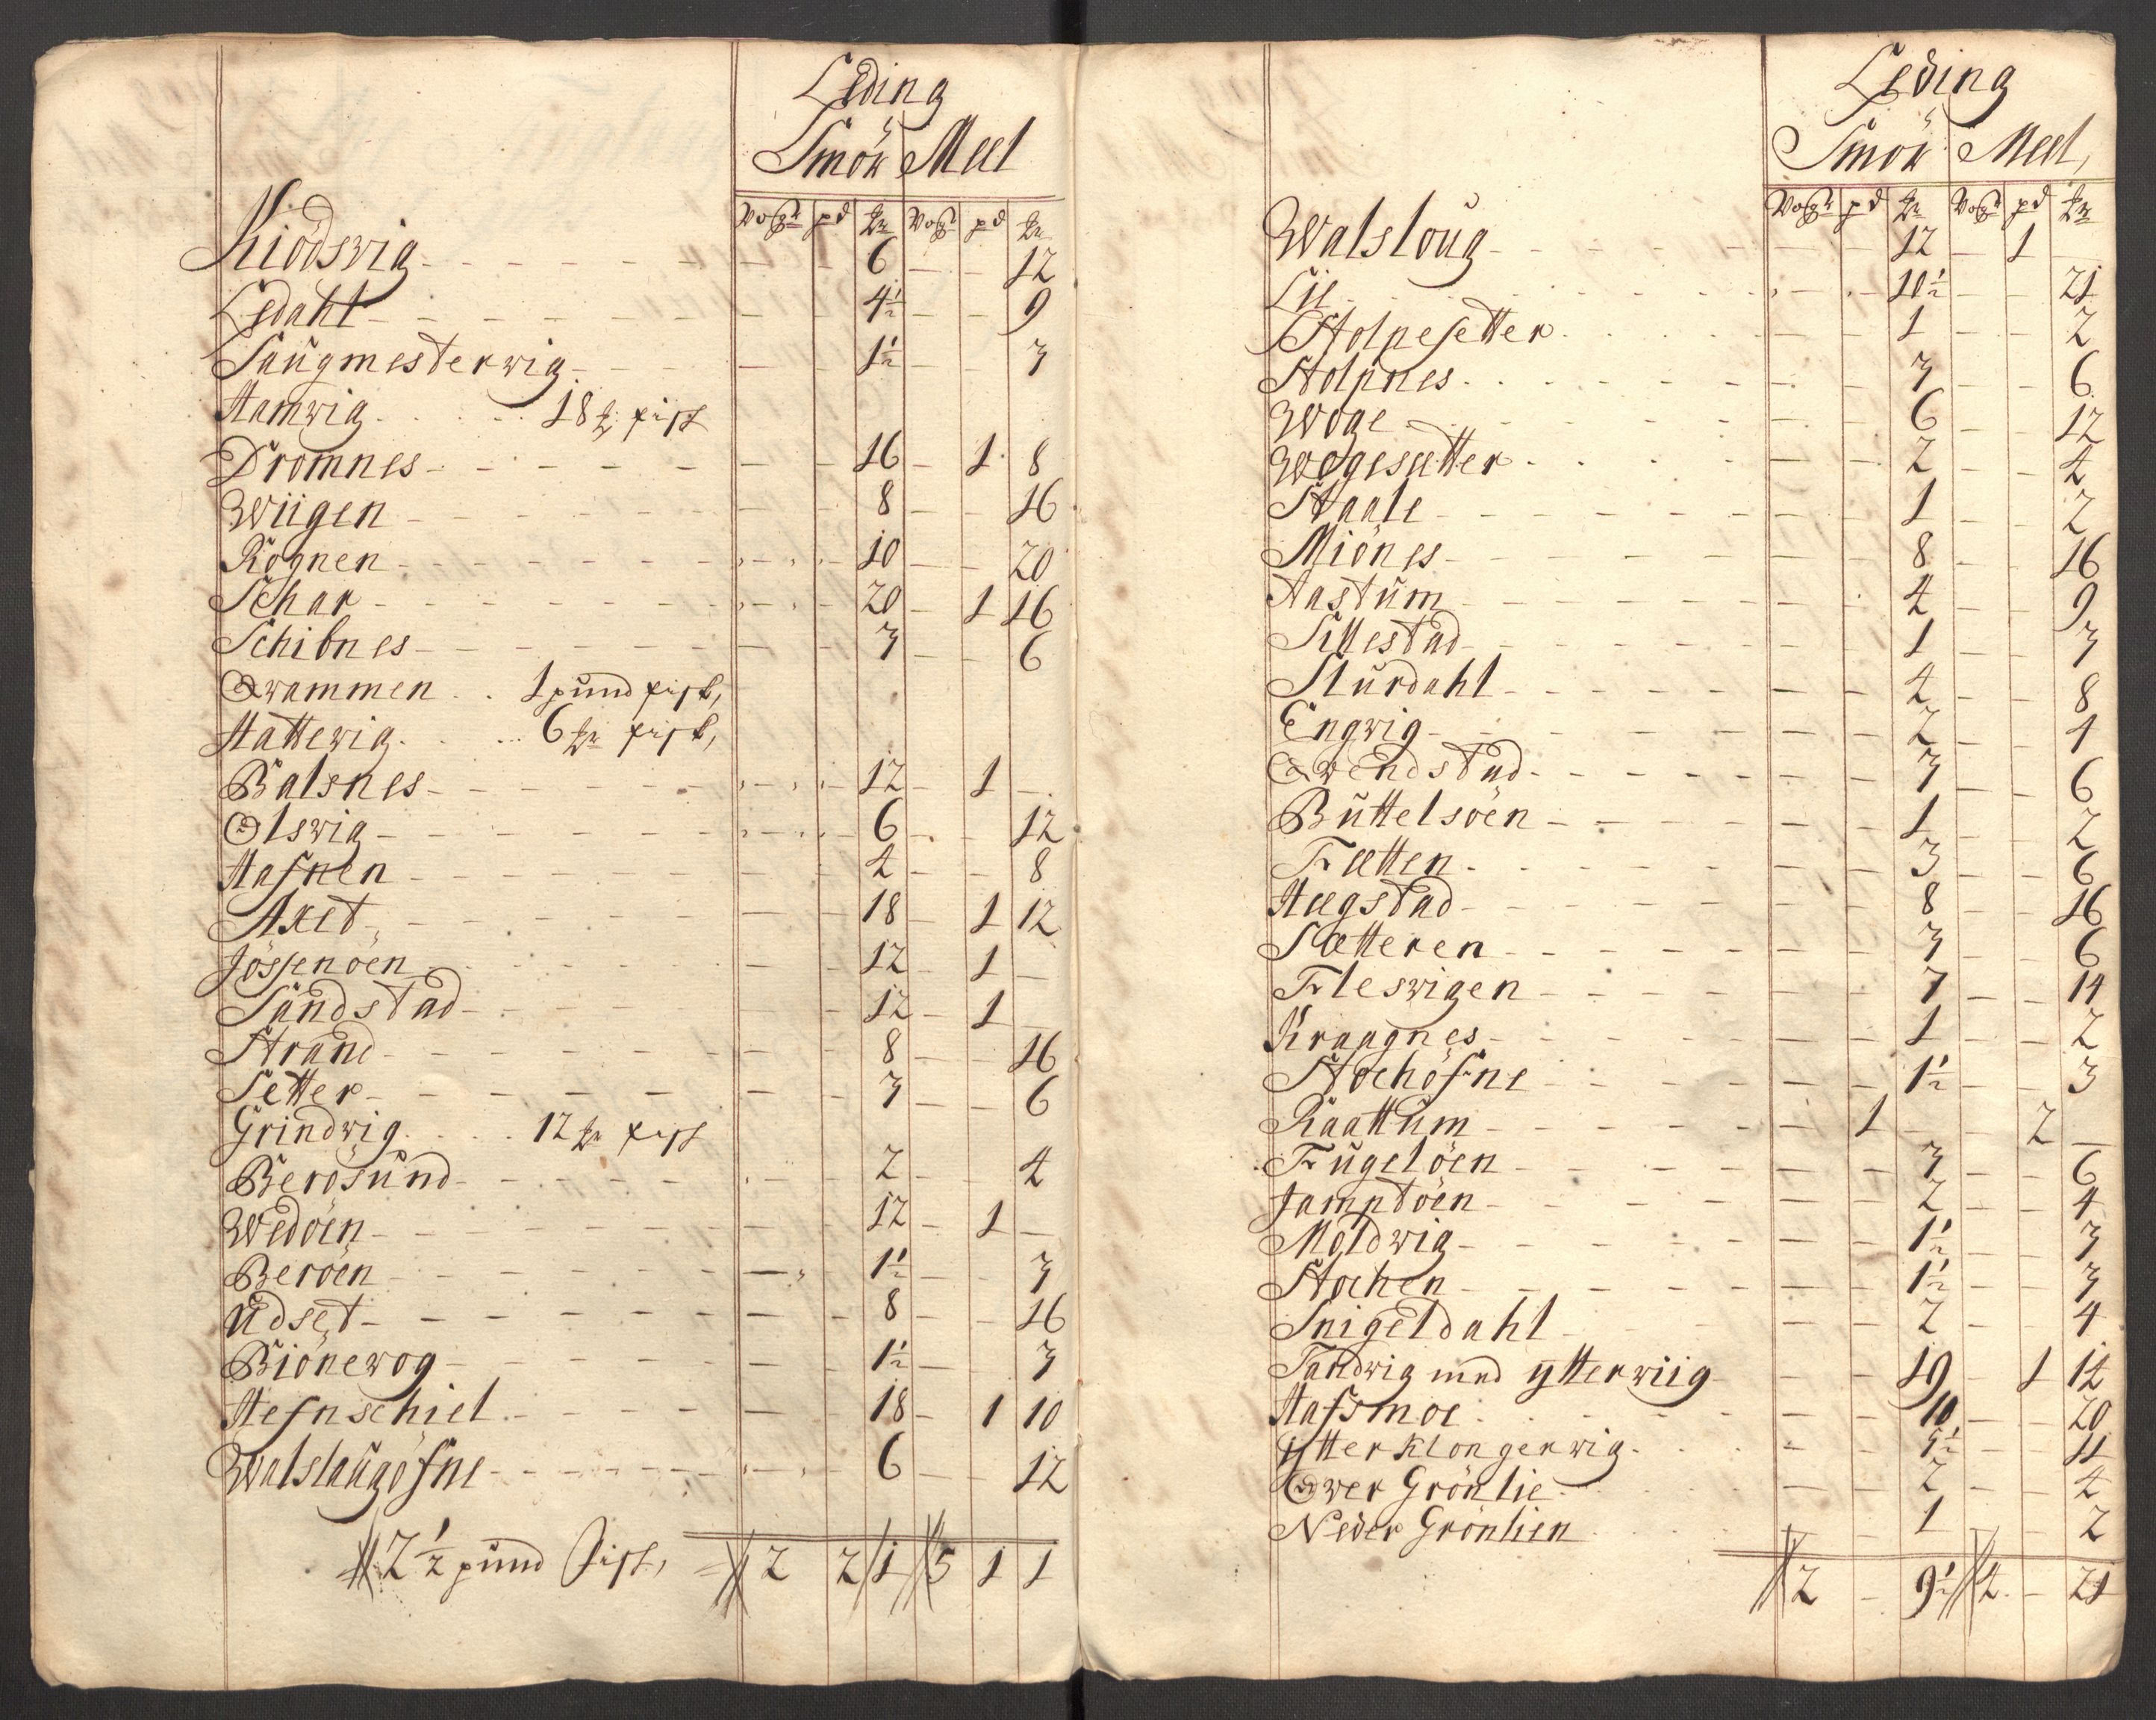 Leding
Smör Meel
Vogr pd ℔ Vogr pd ℔
Kiödsvig - - - 6 - - 12
Ledahl - - - 4½ - - 9
Saugmesterwig - - - 1½ - - 3
Hamwig . . . 18 ℔ fisk
Dromnes - - - 16 - 1 8
Wiigen - - - 8 - - 16
Rognen - - - 10 - - 20
Schar - - - 20 - 1 16
Schibnes - - - 3 - - 6
Qwammen . . 1 pund fisk,
Hattewig . . . 6 ℔ fisk,
Balsnes - - - 12 - 1 -
Olswig - - - 6 - - 12
Hafnen - - - 4 - - 8
Axet - - - 18 - 1 12
Jössenöen - - - 12 - 1 -
Sandstad - - - 12 - 1 -
Strand - - - 8 - - 16
Setter - - - 3 - - 6
Grindwig . . . 12 ℔ fisk
Berösund - - - 2 - - 4
Wedöen - - - 12 - 1 -
Beröen - - - 1½ - - 3
Udset - - - 8 - - 16
Biönewog - - - 1½ - - 3
Hefnschiel - - - 18 - 1 10
Walslaugöfne - - - 6 - - 12
2½ pund Fisk, 2 2 1 5 1 1
Leding
Smör Meel,
Vogr pd ℔ Vogr pd ℔
Walsloug - - - 12 - 1 -
Lie - - - 10½ - - 21
Stolpesetter - - - 1 - - 2
Stolpnes - - - 3 - - 6
Woge - - - 6 - - 12
Wogesetter - - - 2 - - 4
Staale - - - 1 - - 2
Miönes - - - 8 - - 16
Aastum - - - 4 - - 9
Sillestad - - - 1 - - 3
Slurdahl - - - 4 - - 8
Engwig - - - 2 - - 4
Qwendstad - - - 3 - - 6
Buttelsöen - - - 1 - - 2
Fætten - - - 3 - - 6
Hægstad - - - 8 - - 16
Sætteren - - - 3 - - 6
Fleswigen - - - 7 - - 14
Kraagnes - - - 1 - - 2
Stochöfne - - - 1½ - - 3
Raattum - - 1 - - 2 -
Fugelöen - - - 3 - - 6
Jamptöen - - - 2 - - 4
Moldwig - - - 1½ - - 3
Stochen - - - 1½ - - 3
Snigeldahl - - - 2 - - 4
Sandwig med ytterwiig - - 19 - 1 14
Hafsmoe - - - 10 - - 20
ytterklongerwig - - - 5½ - - 11
Ower Grönlie - - - 2 - - 4
Neder Grönlien - - - 1 - - 2
2 - 9½ 4 - 21